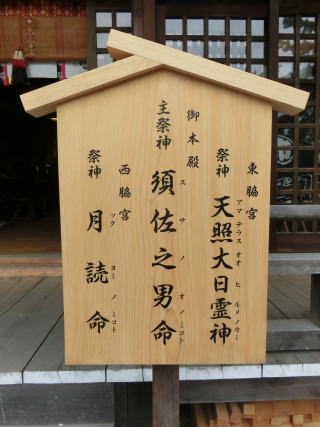 東脇宮
祭神
天照大日霊神
アマテラスオオヒルメノカミ
御本殿
主祭神
須佐之男命
スサノオノミコト
西脇宮
祭神
月読命
ツクヨミノミコト